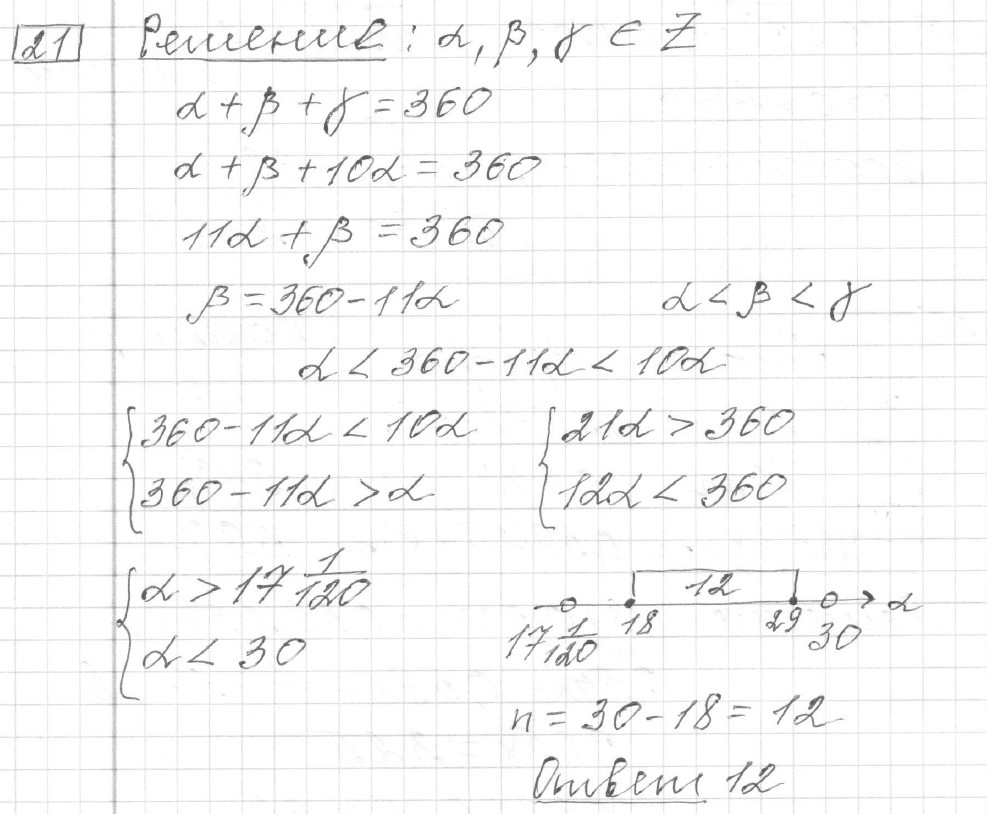 21 Решение: α, β, γ ∈ Z
α + β + γ = 360
α + β + 10α = 360
11α + β = 360
β = 360 - 11α α < β < γ
α < 360 - 11α < 10α
{360 - 11α < 10α {21α > 360
360 - 11α > α 12α < 360
{α > 17 1/120
α < 30
12 α
17 1/120 18 29 30
n = 30 - 18 = 12
Ответ 12